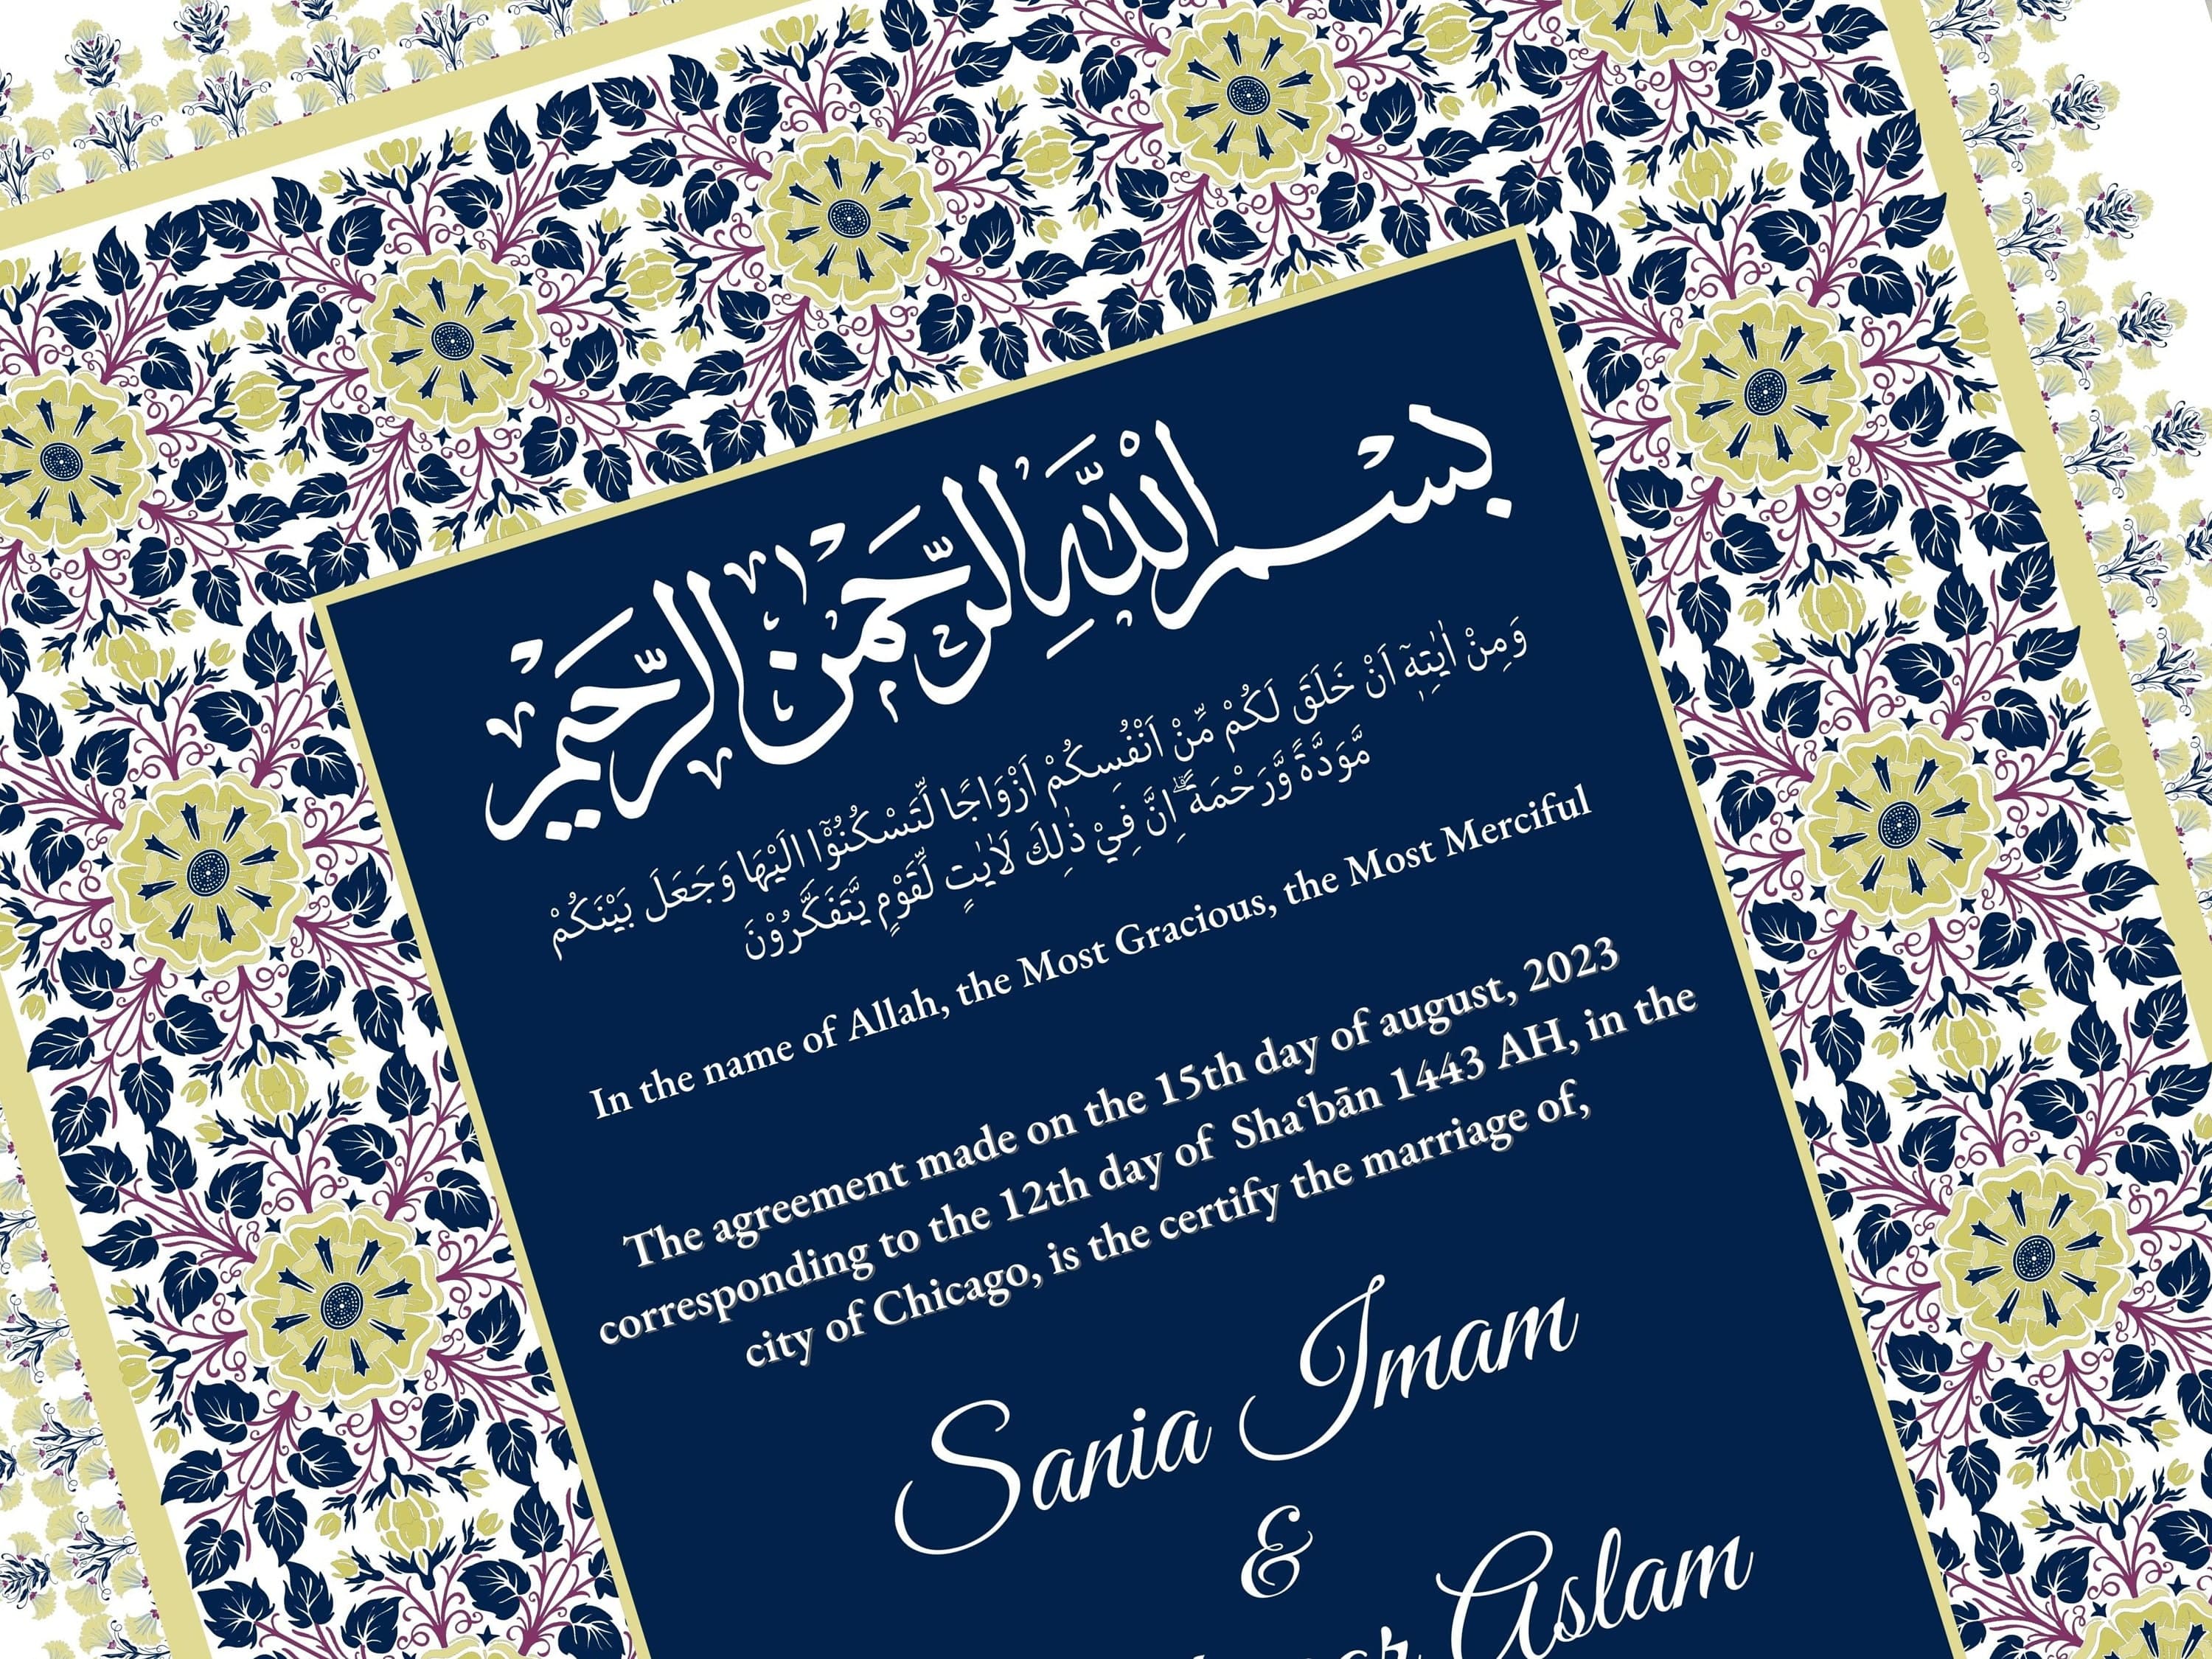 بسم الله الرحمن الرحيم
وَمِنْ اٰيٰتِهٖٓ اَنْ خَلَقَ لَكُمْ مِّنْ اَنْفُسِكُمْ اَزْوَاجًا لِّتَسْكُنُوْٓا اِلَيْهَا وَجَعَلَ بَيْنَكُمْ
مَّوَدَّةً وَّرَحْمَةً ۗاِنَّ فِيْ ذٰلِكَ لَاٰيٰتٍ لِّقَوْمٍ يَّتَفَكَّرُوْنَ
In the name of Allah, the Most Gracious, the Most Merciful
The agreement made on the 15th day of august, 2023
corresponding to the 12th day of Sha‘bān 1443 AH, in the
city of Chicago, is the certify the marriage of,
Sania Imam
&
Aslam